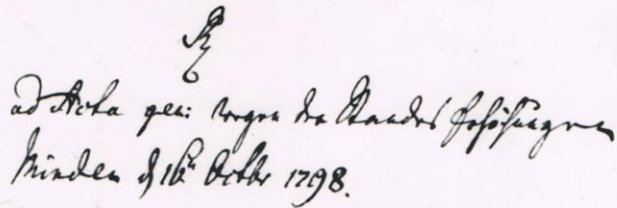 R
ad Acta gen: wegen der Standes Erhöhungen
Minden d 16t Octbr 1798.